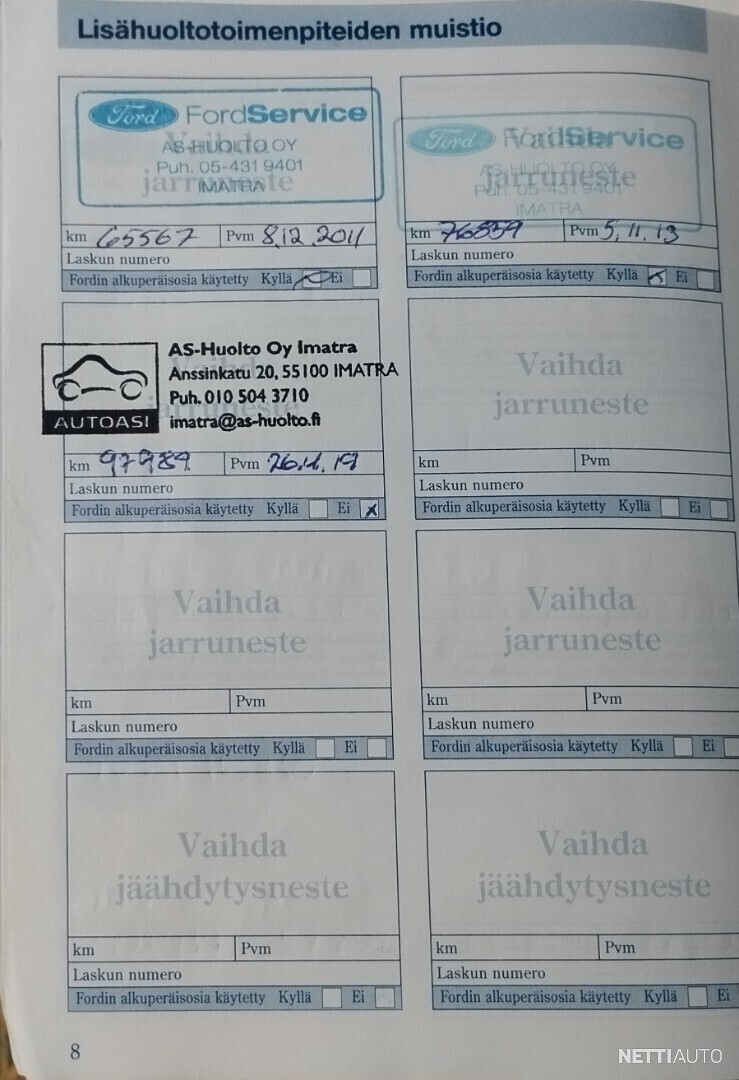 Lisähuoltotoimenpiteiden muistio
Ford FordService
Vaihda
AS-HUOLTO OY
Puh. 05-431 9401
jarruneste
IMATRA
km 65567 Pvm 8.12.2011
Laskun numero
Fordin alkuperäisosia käytetty Kyllä Ei
Ford FordService
Vaihda
AS-HUOLTO OY
jarruneste
Puh. 05-431 9401
IMATRA
km 76859 Pvm 5.11.13
Laskun numero
Fordin alkuperäisosia käytetty Kyllä Ei
AUTOASI
AS-Huolto Oy Imatra
Anssinkatu 20, 55100 IMATRA
Puh. 010 504 3710
imatra@as-huolto.fi
jarruneste
km 97989 Pvm
Laskun numero
Fordin alkuperäisosia käytetty Kyllä Ei x
Vaihda
jarruneste
km Pvm
Laskun numero
Fordin alkuperäisosia käytetty Kyllä Ei
Vaihda
jarruneste
km Pvm
Laskun numero
Fordin alkuperäisosia käytetty Kyllä Ei
Vaihda
jarruneste
km Pvm
Laskun numero
Fordin alkuperäisosia käytetty Kyllä Ei
Vaihda
jäähdytysneste
km Pvm
Laskun numero
Fordin alkuperäisosia käytetty Kyllä Ei
Vaihda
jäähdytysneste
km Pvm
Laskun numero
Fordin alkuperäisosia käytetty Kyllä Ei
8
NETTIAUTO